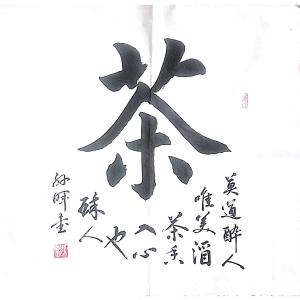 茶
莫道醉人
唯美酒
茶香
入心
也
醉人
孙晖书